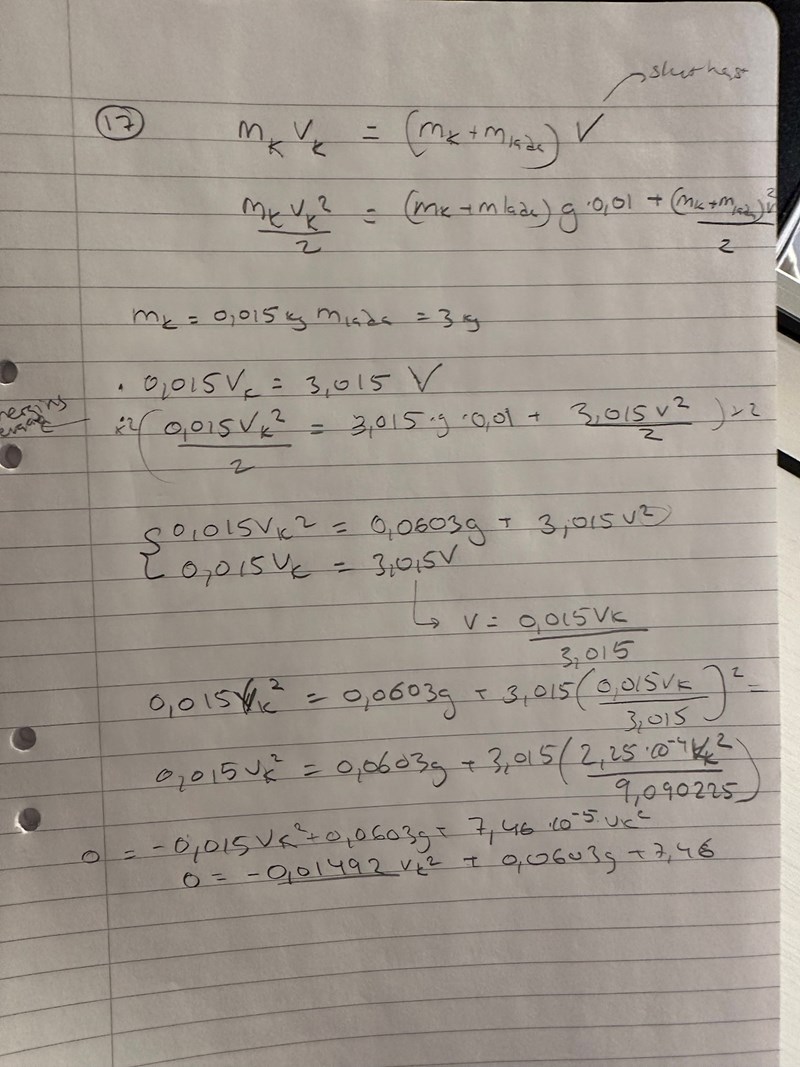 sluthast
(17) m_k v_k = (m_k + m_låda) V
m_k v_k² / 2 = (m_k + mlåda) g · 0,01 + (m_k + m_låda) v² / 2
m_k = 0,015 kg m_låda = 3 kg
· 0,015 V_k = 3,015 V
×2 ( 0,015 V_k² / 2 = 3,015 · g · 0,01 + 3,015 v² / 2 ) ×2
{ 0,015 V_k² = 0,0603g + 3,015 v²
0,015 V_k = 3,015V
↳ v = 0,015 V_k / 3,015
0,015 V_k² = 0,0603g + 3,015 ( 0,015 V_k / 3,015 )² =
0,015 v_k² = 0,0603g + 3,015 ( 2,25 · 10⁻⁴ V_k² / 9,090225 )
0 = -0,015 V_k² + 0,0603g + 7,46 · 10⁻⁵ · V_k²
0 = -0,01492 v_k² + 0,0603g + 7,46